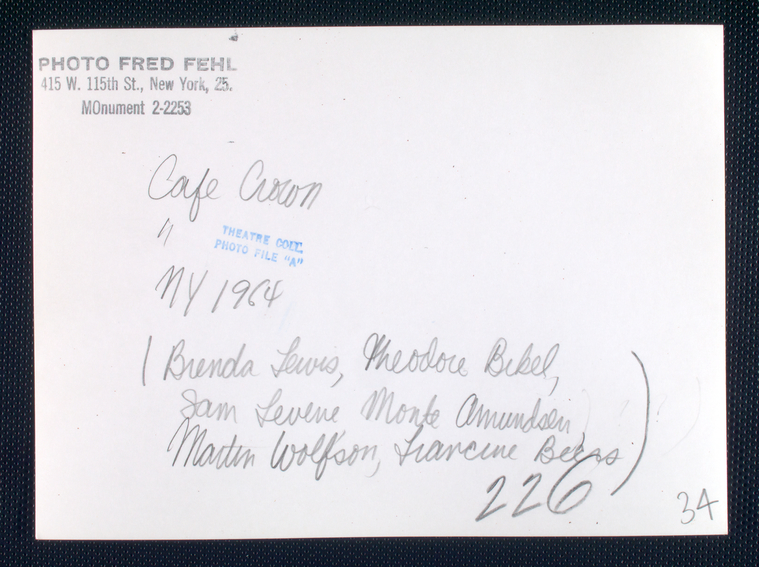 PHOTO FRED FEHL
415 W. 115th St., New York, 25.
MOnument 2-2253
Cafe Crown
"
THEATRE COLL.
PHOTO FILE "A"
NY 1964
( Brenda Lewis, Theodore Bikel,
Sam Levene, Monte Amundsen,
Martin Wolfson, Francine Beers )
226
34